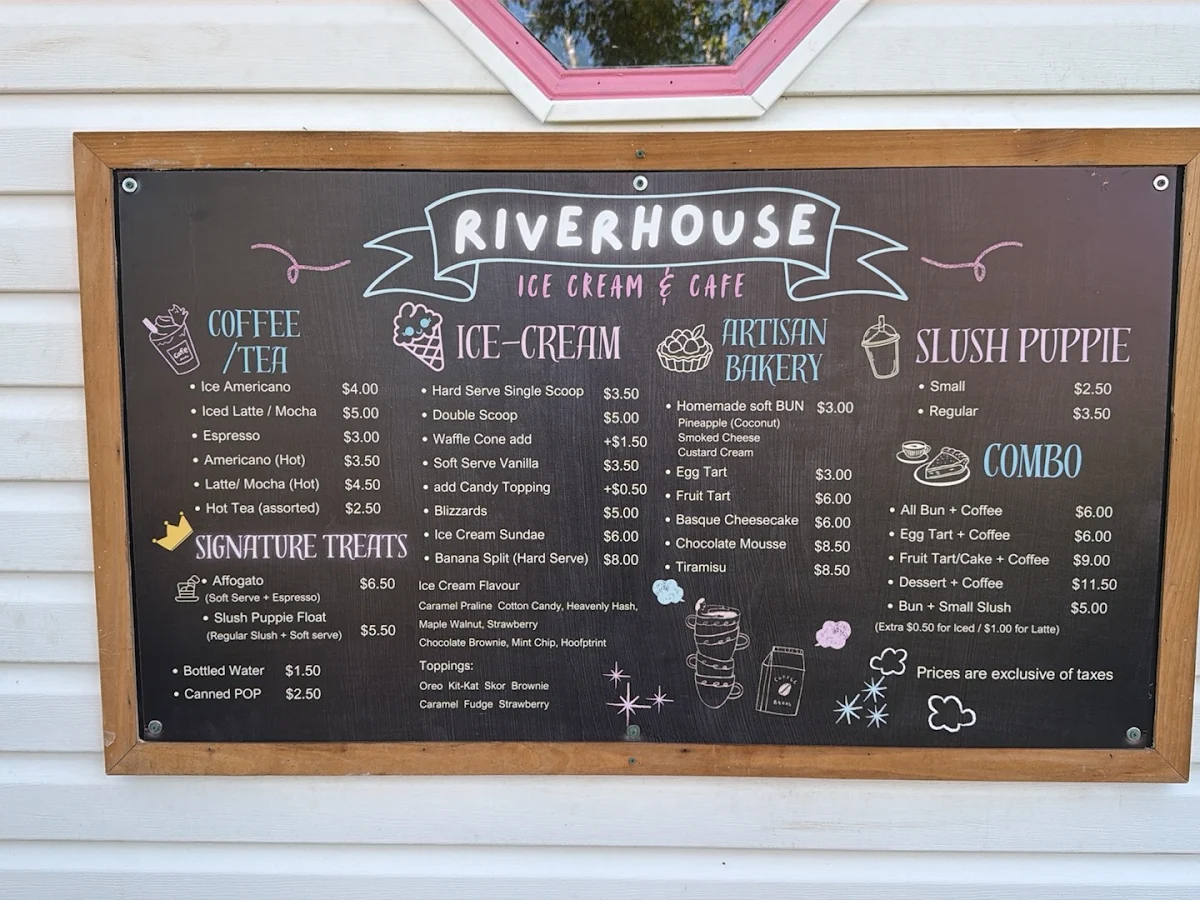 RIVERHOUSE
ICE CREAM & CAFE
COFFEE
/TEA
• Ice Americano $4.00
• Iced Latte / Mocha $5.00
• Espresso $3.00
• Americano (Hot) $3.50
• Latte/ Mocha (Hot) $4.50
• Hot Tea (assorted) $2.50
SIGNATURE TREATS
• Affogato $6.50
(Soft Serve + Espresso)
• Slush Puppie Float
(Regular Slush + Soft serve) $5.50
• Bottled Water $1.50
• Canned POP $2.50
ICE-CREAM
• Hard Serve Single Scoop $3.50
• Double Scoop $5.00
• Waffle Cone add +$1.50
• Soft Serve Vanilla $3.50
• add Candy Topping +$0.50
• Blizzards $5.00
• Ice Cream Sundae $6.00
• Banana Split (Hard Serve) $8.00
Ice Cream Flavour
Caramel Praline Cotton Candy, Heavenly Hash,
Maple Walnut, Strawberry
Chocolate Brownie, Mint Chip, Hoofptrint
Toppings:
Oreo Kit-Kat Skor Brownie
Caramel Fudge Strawberry
ARTISAN
BAKERY
• Homemade soft BUN $3.00
Pineapple (Coconut)
Smoked Cheese
Custard Cream
• Egg Tart $3.00
• Fruit Tart $6.00
• Basque Cheesecake $6.00
• Chocolate Mousse $8.50
• Tiramisu $8.50
COFFEE
BEANS
SLUSH PUPPIE
• Small $2.50
• Regular $3.50
COMBO
• All Bun + Coffee $6.00
• Egg Tart + Coffee $6.00
• Fruit Tart/Cake + Coffee $9.00
• Dessert + Coffee $11.50
• Bun + Small Slush $5.00
(Extra $0.50 for Iced / $1.00 for Latte)
Prices are exclusive of taxes